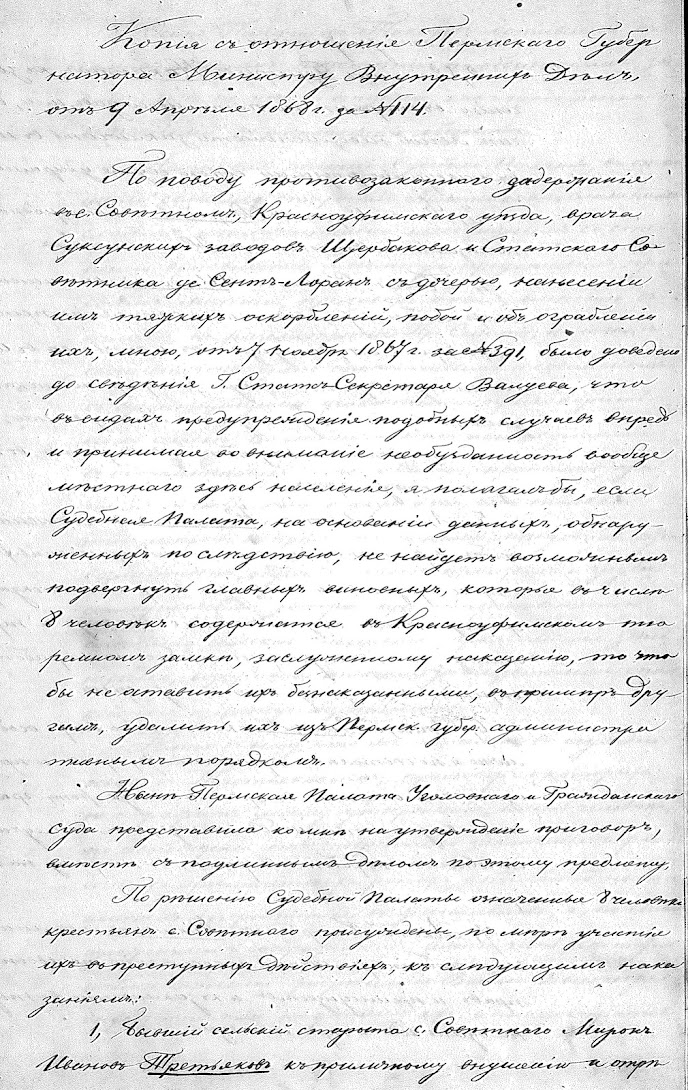 Копія съ отношенія Пермскаго Губер
натора Министру Внутреннихъ Дѣлъ,
отъ 9 Апрѣля 1868 г. за № 114.
По поводу противозаконнаго задержанія
въ с. Совѣтномъ, Красноуфимскаго уѣзда, врача
Суксунскихъ заводовъ Щербакова и Статскаго Со-
вѣтника де Сентъ-Лоранъ съ дочерью, нанесеніи
имъ тяжкихъ оскорбленій, побой и объ ограбленіи
ихъ, мною, отъ 7 Ноября 1867 г. за № 391, было доведено
до свѣдѣнія Г. Статсъ-Секретаря Валуева, что
въ видахъ предупрежденія подобныхъ случаевъ впредь
и принимая во вниманіе необузданность вообще
мѣстнаго здѣсь населенія, я полагалъ бы, если
Судебная Палата, на основаніи данныхъ, обнару-
женныхъ по слѣдствію, не найдетъ возможнымъ
подвергнуть главныхъ виновныхъ, которые въ числѣ
8 человѣкъ содержатся въ Красноуфимскомъ тю
ремномъ замкѣ, заслуженному наказанію, то что
бы не оставить ихъ безнаказанными, въ примѣръ дру-
гимъ, удалить ихъ изъ Пермск. губер. администра
тивнымъ порядкомъ.
Нынѣ Пермская Палата Уголовнаго и Гражданскаго
суда представила ко мнѣ на утвержденіе приговоръ,
вмѣстѣ съ подлиннымъ дѣломъ по этому предмету.
По рѣшенію Судебной Палаты означенные 8 человѣкъ
крестьянъ с. Совѣтнаго присуждены, по мѣрѣ участія
ихъ въ преступныхъ дѣйствіяхъ, къ слѣдующимъ нака
заніямъ:
1, Бывшій сельскій староста с. Совѣтнаго Миронъ
Ивановъ Третьяковъ къ приличному внушенію и отрѣ